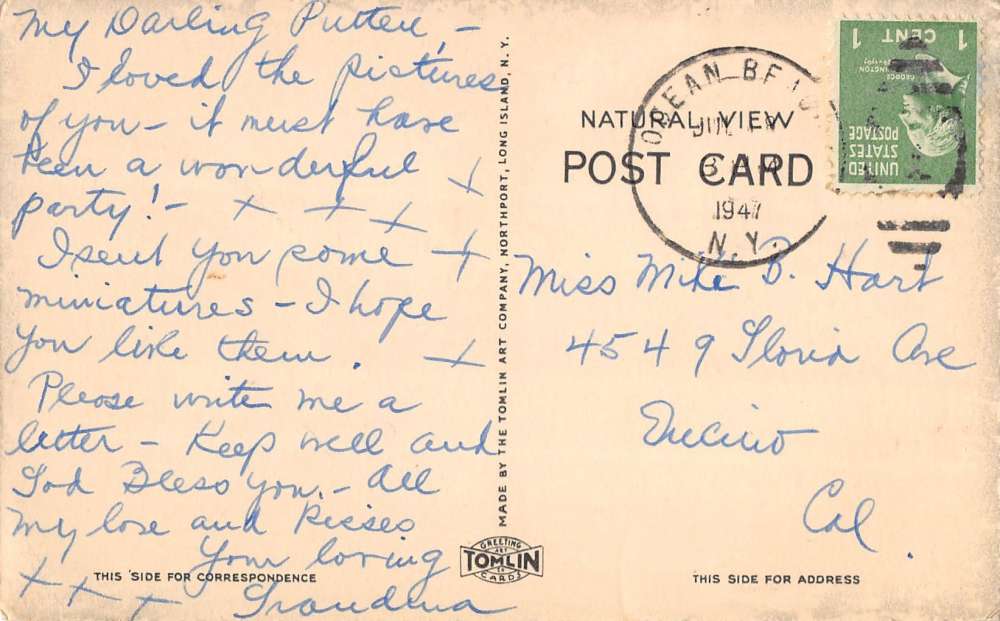 My Darling Putten, -
I loved the pictures
of you - it must have
been a wonderful
party! -
I sent you some
miniatures - I hope
you like them.
Please write me a
letter - Keep well and
God Bless you. - All
my love and kisses
Your loving
Grandma
x x x
THIS SIDE FOR CORRESPONDENCE
MADE BY THE TOMLIN ART COMPANY, NORTHPORT, LONG ISLAND, N. Y.
GREETING
ART
TOMLIN
CO
CARDS
NATURAL VIEW
POST CARD
OCEAN BEACH
JUL
1947
N.Y.
UNITED
STATES
POSTAGE
GEORGE
WASHINGTON
1 CENT 1
Miss Mike B. Hart
4549 Ave
Encino
Cal.
THIS SIDE FOR ADDRESS